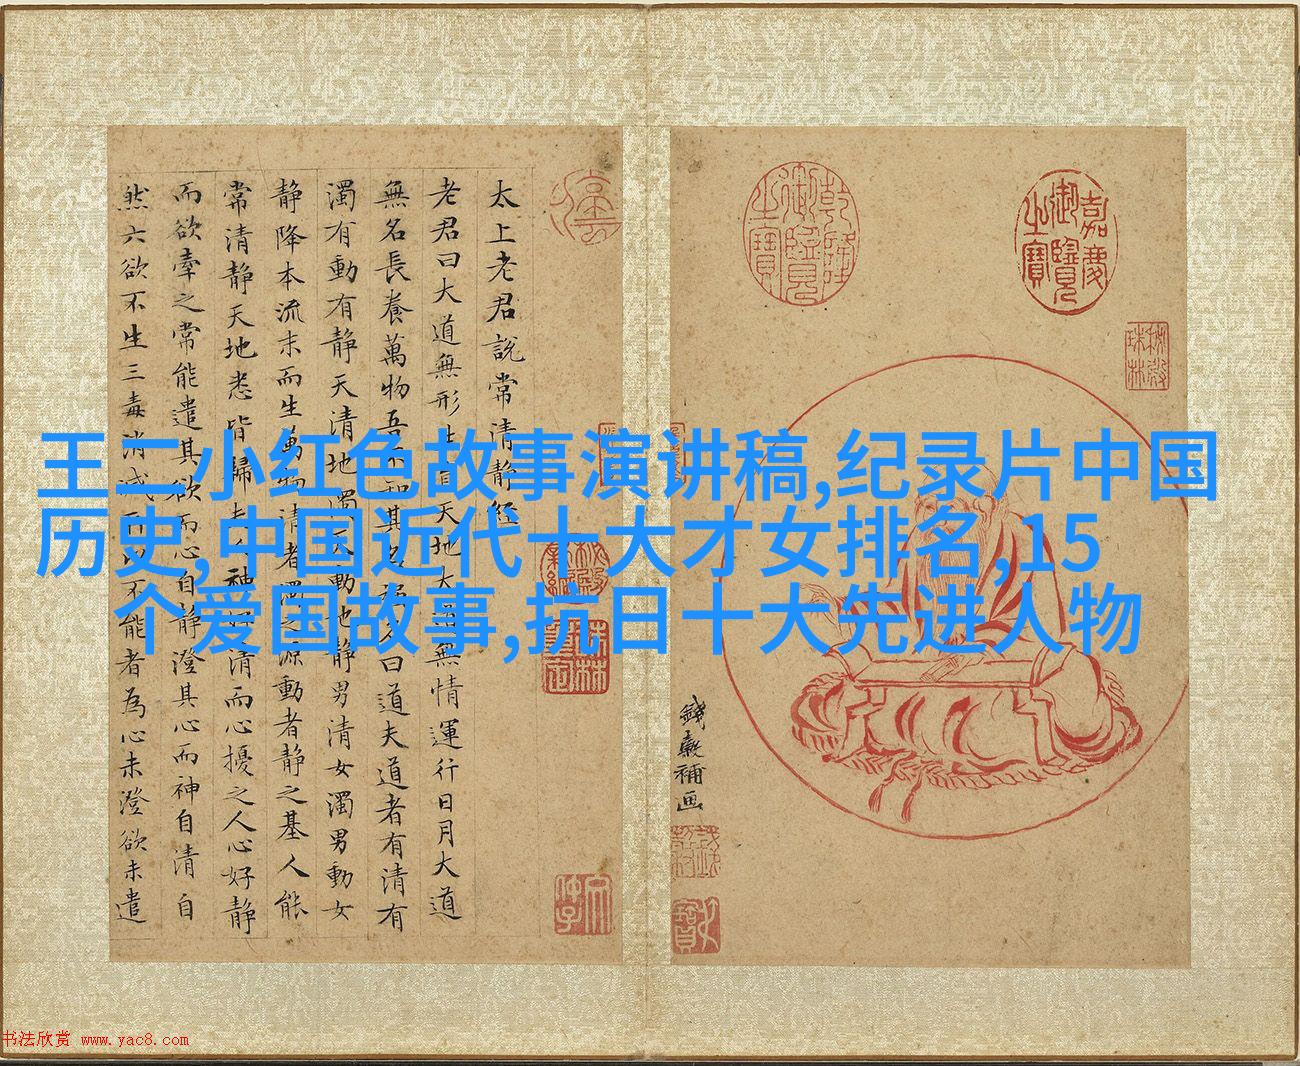 乾隆御覽之寶
嘉慶御覽之寶
秘殿珠林
太上老君説常清静經
老君曰大道無形生育天地大道無情運行日月大道
無名長養萬物吾不知其名強名曰道夫道者有清有
濁有動有静天清地濁天動地静男清女濁男動女
静降本流末而生萬物清者濁之源動者静之基人能
常清静天地悉皆歸夫人神好清而心擾之人心好静
而欲牽之常能遣其欲而心自静澄其心而神自清自
然六欲不生三毒消滅所以不能者為心未澄欲未遣
王二小红色故事演讲稿,纪录片中国
历史,中国近代十大才女排名,15
个爱国故事,抗日十大先进人物
錢穀補画
书法欣赏 www.yac8.com